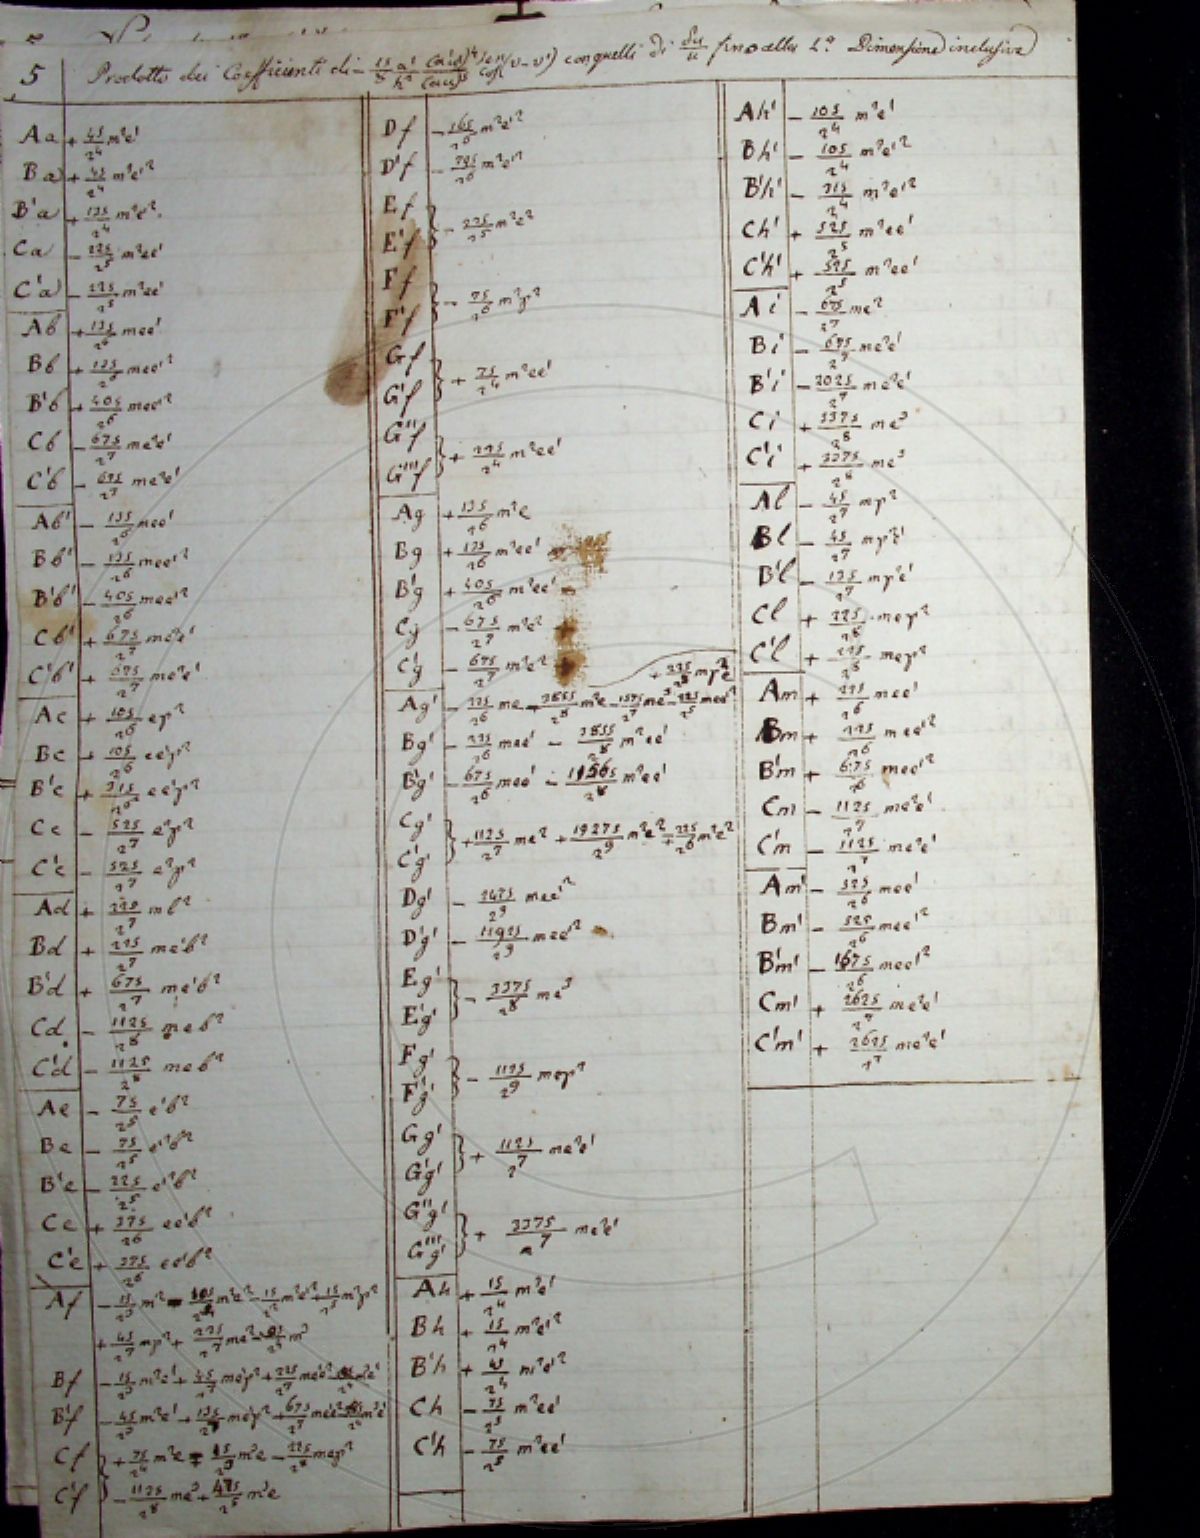 5 Prodotto dei Coefficienti di con quelli di δu/u fino alla 2ª Dimensione inclusive
Aa + 45/2^4 m²e'
Ba + 45/2^4 m²e'²
B'a + 135/2^4 m²e'²
Ca - 225/2^5 m²ee'
C'a - 225/2^5 m²ee'
Ab + 135/2^6 mee'
Bb + 135/2^6 mee'²
B'b + 405/2^6 mee'²
Cb - 675/2^7 me²e'
C'b - 675/2^7 me²e'
Ab' - 135/2^6 mee'
Bb' - 135/2^6 mee'²
B'b' - 405/2^6 mee'²
Cb' + 675/2^7 me²e'
C'b' + 675/2^7 me²e'
Ac + 105/2^6 eγ²
Bc + 105/2^6 ee'γ²
B'c + 315/2^6 ee'γ²
Cc - 525/2^7 e²γ²
C'c - 525/2^7 e²γ²
Ad + 225/2^7 mb²
Bd + 225/2^7 me'b²
B'd + 675/2^7 me'b²
Cd - 1125/2^8 meb²
C'd - 1125/2^8 meb²
Ae - 75/2^5 e'b²
Be - 75/2^5 e'²b²
B'e - 225/2^5 e'²b²
Ce + 375/2^6 ee'b²
C'e + 375/2^6 ee'b²
Af - 15/2^3 m² m²e² - 15/2^2 m²e'² + 15/2^5 m²γ²
+ 45/2^7 mγ² + 225/2^7 me² m³
Bf - 15/2^3 m²e' + 45/2^7 me'γ² + 225/2^7 me²e'
B'f - 45/2^3 m²e' + 135/2^7 me'γ² + 675/2^7 me²e'
Cf + 75/2^4 m²e m²e - 225/2^8 meγ²
C'f - 1125/2^8 me³ + 475/2^5 m³e
Df - 165/2^6 m²e'²
D'f - 795/2^6 m²e'²
Ef
E'f } - 225/2^5 m²e²
Ff
F'f } - 75/2^6 m²γ²
Gf
G'f } + 75/2^4 m²ee'
G''f
G'''f } + 225/2^4 m²ee'
Ag + 135/2^6 m²e
Bg + 135/2^6 m²ee'
B'g + 405/2^6 m²ee'
Cg - 675/2^7 m²e²
C'g - 675/2^7 m²e²
+ 225/2^8 mγ²e
Ag' - 225/2^6 me - 3855/2^8 m²e - 1575/2^7 me³ - 225/2^5 mee'²
Bg' - 225/2^6 mee' - 3855/2^8 m²ee'
B'g' - 675/2^6 mee' - 11565/2^8 m²ee'
Cg'
C'g' } + 1125/2^7 me² + 19275/2^9 m²e² + 225/2^6 m²e²
Dg' - 2475/2^9 mee'²
D'g' - 11925/2^9 mee'²
Eg'
E'g' } - 3375/2^8 me³
Fg'
F'g' } - 1125/2^9 meγ²
Gg'
G'g' } + 1125/2^7 me²e'
G''g'
G'''g' } + 3375/2^7 me²e'
Ah + 15/2^4 m²e'
Bh + 15/2^4 m²e'²
B'h + 45/2^4 m²e'²
Ch - 75/2^5 m²ee'
C'h - 75/2^5 m²ee'
Ah' - 105/2^4 m²e'
Bh' - 105/2^4 m²e'²
B'h' - 315/2^4 m²e'²
Ch' + 525/2^5 m²ee'
C'h' + 525/2^5 m²ee'
Ai - 675/2^7 me²
Bi - 675/2^7 me²e'
B'i - 2025/2^7 me²e'
Ci + 3375/2^8 me³
C'i + 3375/2^8 me³
Al - 45/2^7 mγ²
Bl - 45/2^7 mγ²e'
B'l - 135/2^7 mγ²e'
Cl + 225/2^8 meγ²
C'l + 225/2^8 meγ²
Am + 225/2^6 mee'
Bm + 225/2^6 mee'²
B'm + 675/2^6 mee'²
Cm - 1125/2^7 me²e'
C'm - 1125/2^7 me²e'
Am' - 525/2^6 mee'
Bm' - 525/2^6 mee'²
B'm' - 1575/2^6 mee'²
Cm' + 2625/2^7 me²e'
C'm' + 2625/2^7 me²e'